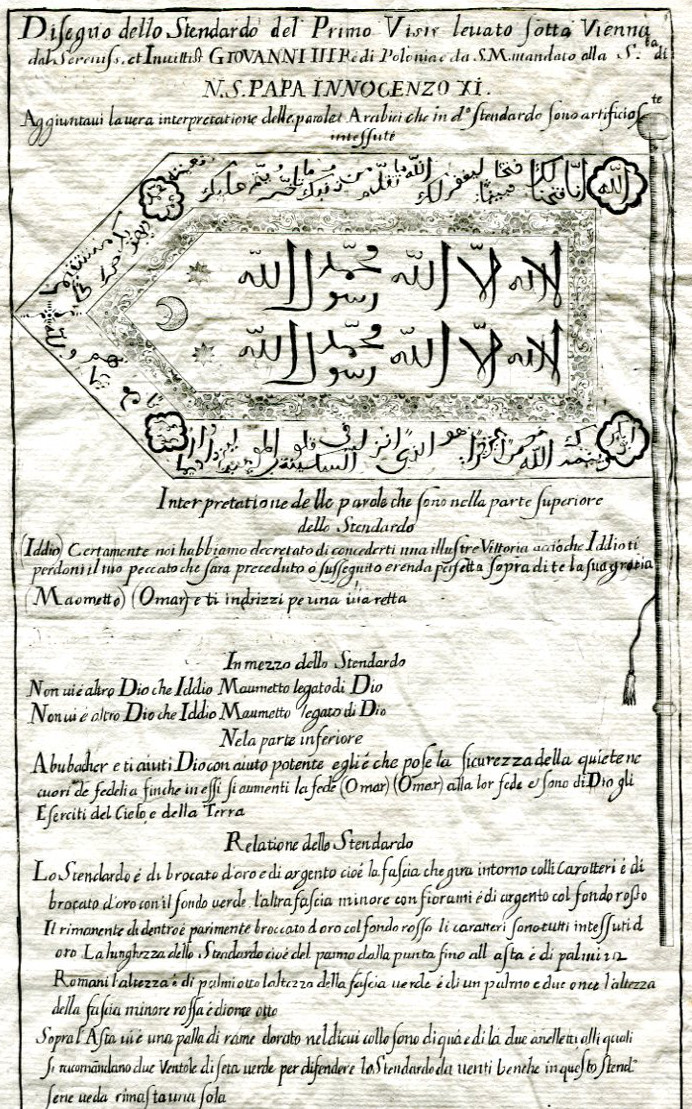 Disegno dello Stendardo del Primo Visir leuato sotto Vienna
dal Sereniss. et Inuittiss. GIOVANNI III Rè di Polonia e da S.M. mandato alla S.tà di
N.S. PAPA INNOCENZO XI.
Aggiuntaui la uera interpretatione delle parole Arabici che in d.o Stendardo sono artificios.te
intessute
الله انا فتحنا لك فتحا مبينا ليغفر لك الله ما تقدم من ذنبك وما تاخر ويتم
لا اله الا الله محمد رسول الله
لا اله الا الله محمد رسول الله
الله هو الذي انزل السكينة في قلو
Interpretatione delle parole che sono nella parte superiore
dello Stendardo
(Iddio) Certamente noi habbiamo decretato di concederti una illustre Vittoria acciò che Iddio ti
perdoni il tuo peccato che sarà preceduto ò susseguito e renda perfetta sopra di te la sua gratia
(Maometto) (Omar) e ti indrizzi pe una uia retta
In mezzo dello Stendardo
Non ui è altro Dio che Iddio Maumetto legato di Dio
Non ui è altro Dio che Iddio Maumetto legato di Dio
Nela parte inferiore
Abubacher e ti aiuti Dio con aiuto potente egli é che pose la sicurezza della quiete ne
cuori de fedeli a finche in essi si aumenti la fede (Omar) (Omar) alla lor fede e sono di Dio gli
Eserciti del Cielo, e della Terra
Relatione dello Stendardo
Lo Stendardo é di brocato d'oro e di argento cioé la fascia che gira intorno colli Caratteri é di
brocato d'oro con il fondo uerde, l'altra fascia minore con fiorami é di argento col fondo rosso
Il rimanente di dentro é parimente broccato d'oro col fondo rosso li caratteri sono tutti intessuti d
oro La lunghezza dello Stendardo cioé del panno dalla punta fino all asta é di palmi 12
Romani l'altezza é di palmi otto l'altezza della fascia uerde é di un palmo e due once l'altezza
della fascia minore rossa é di onte otto
Sopra l'Asta ui é una palla di rame dorato nel di cui collo sono di quà e di là due anelletti alli quali
si racomandano due Ventole di seta uerde per difendere lo Stendardo da uenti benche in questo Stend.o
sene ueda rimasta una sola